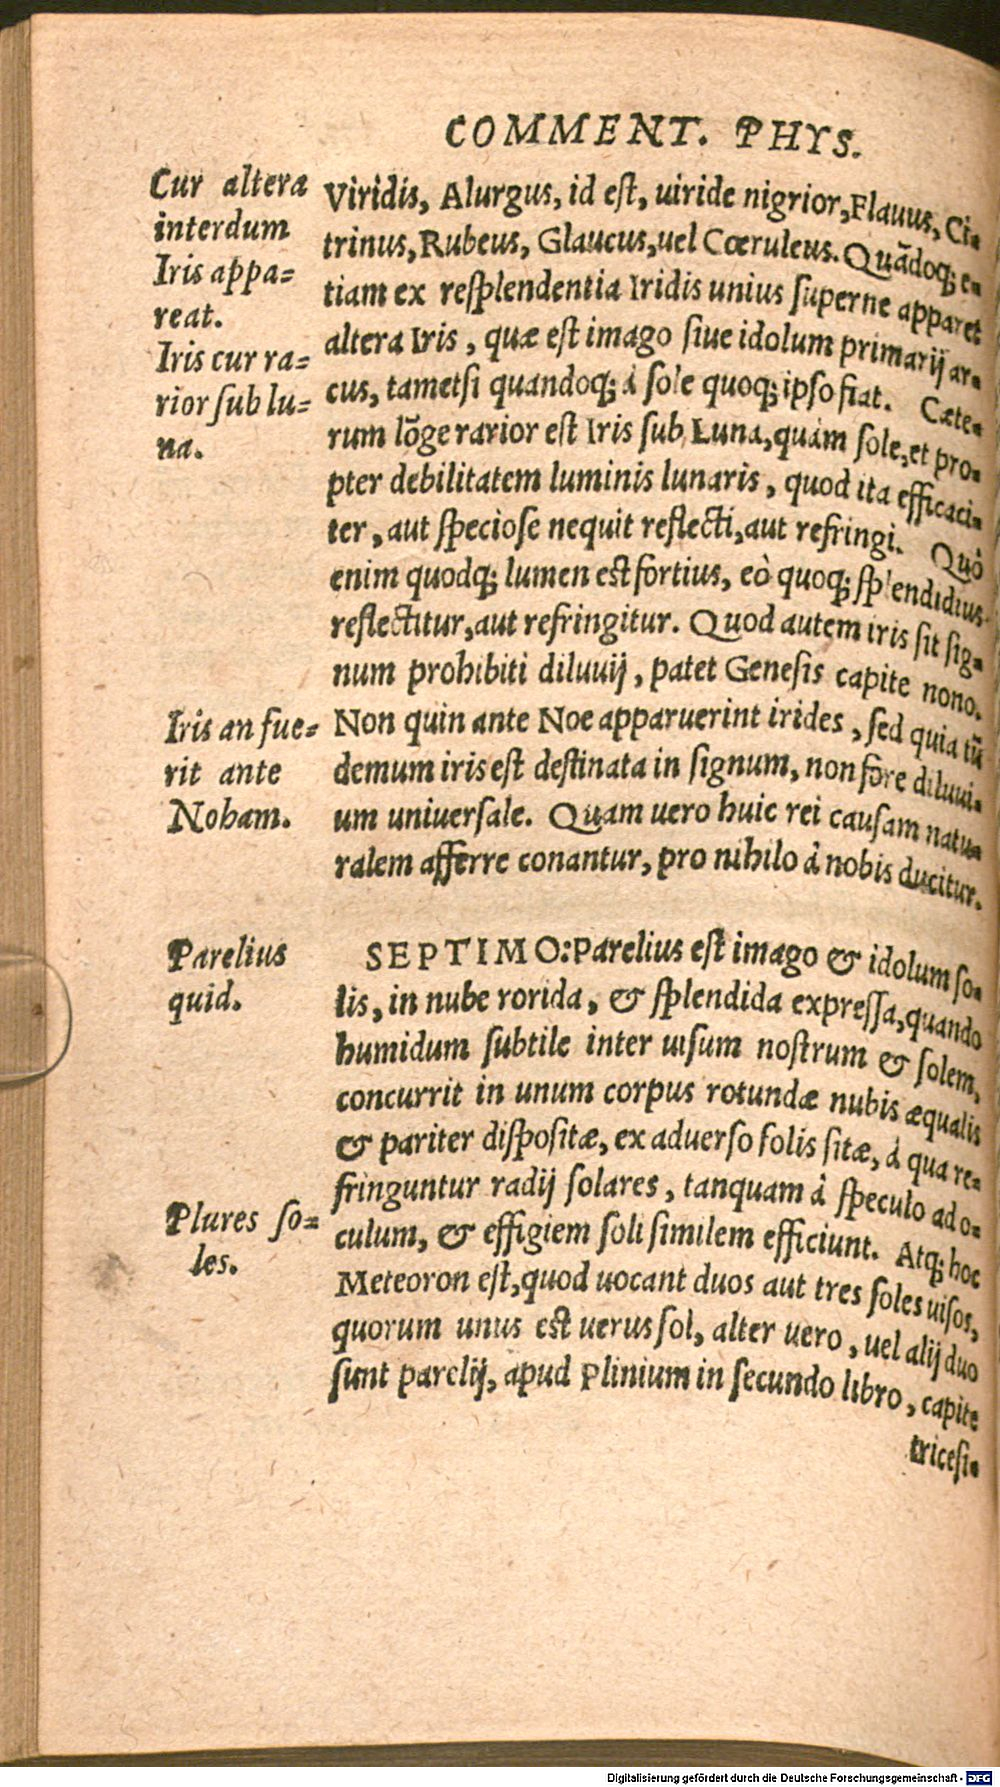 COMMENT. PHYS.
Cur altera
interdum
Iris appa=
reat.
Iris cur ra=
rior sub lu=
na.
Viridis, Alurgus, id est, uiride nigrior, Flauus, Ci-
trinus, Rubeus, Glaucus, uel Cœruleus. Quãdoq; e-
tiam ex resplendentia Iridis unius superne apparet
altera Iris, quæ est imago siue idolum primarij ar-
cus, tametsi quandoq; à sole quoq; ipso fiat. Cæte-
rum lõge rarior est Iris sub Luna, quàm sole, et pro-
pter debilitatem luminis lunaris, quod ita efficaci-
ter, aut speciose nequit reflecti, aut refringi. Quò
enim quodq; lumen est fortius, eò quoq; splendidius
reflectitur, aut refringitur. Quod autem iris sit sig-
num prohibiti diluuij, patet Genesis capite nono.
Iris an fue=
rit ante
Noham.
Non quin ante Noe apparuerint irides, sed quia tũ
demum iris est destinata in signum, non fore diluui-
um uniuersale. Quam uero huic rei causam natu-
ralem afferre conantur, pro nihilo à nobis ducitur.
Parelius
quid.
SEPTIMO: Parelius est imago & idolum so-
lis, in nube rorida, & splendida expressa, quando
humidum subtile inter uisum nostrum & solem,
concurrit in unum corpus rotundæ nubis æqualis
& pariter dispositæ, ex aduerso solis sitæ, à qua re-
fringuntur radij solares, tanquam à speculo ad o-
Plures so=
les.
culum, & effigiem soli similem efficiunt. Atq; hoc
Meteoron est, quod uocant duos aut tres soles uisos,
quorum unus est uerus sol, alter uero, uel alij duo
sunt parelij, apud Plinium in secundo libro, capite
tricesi-
Digitalisierung gefördert durch die Deutsche Forschungsgemeinschaft - DFG